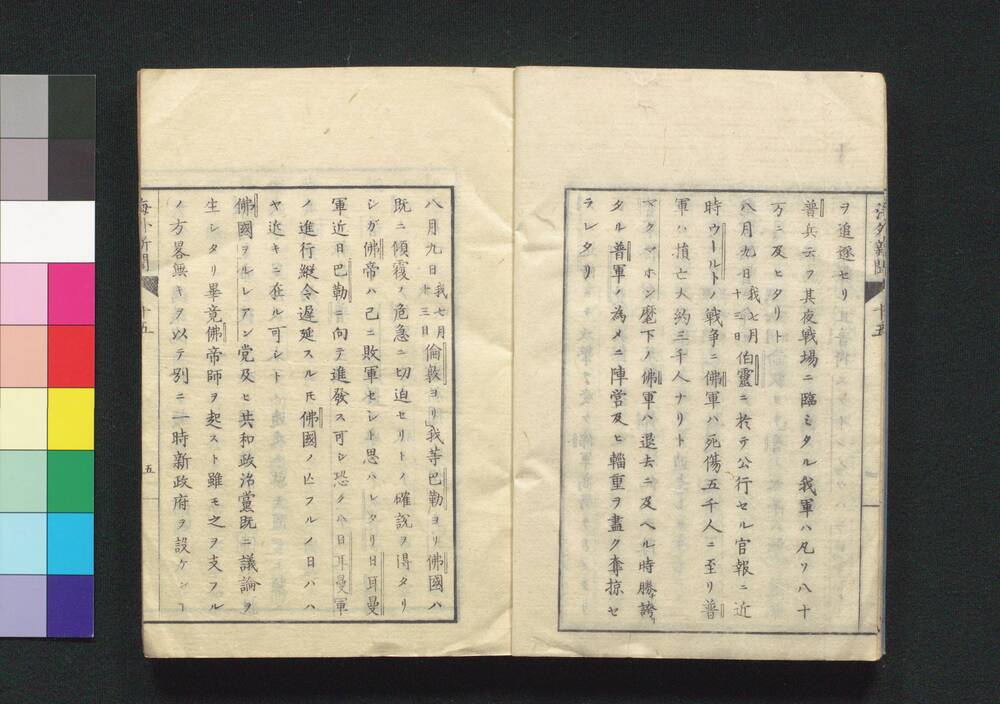 海外新聞 十五
ヲ追逐セリ
普兵云フ其夜戦場ニ臨ミタル我軍ハ凡ソ八十
万ニ及ヒタリト
八月九日我七月十三日伯靈ニ於テ公行セル官報ニ近
時ウールトノ戦争ニ佛軍ハ死傷五千人ニ至リ普
軍ハ損亡人約ニ千人ナリト
マクマホン麾下ノ佛軍ハ退去ニ及ヘル時勝誇
タル普軍ノ為メニ陣営及ヒ輜重ヲ盡ク奪掠セ
ラレタリ
八月九日我七月十三日倫敦ヨリ我等巴勒ヨリ佛國ハ
既ニ傾覆ノ危急ニ切迫セリトノ確説ヲ得タリ
シガ佛帝ハ己ニ敗軍セシト思ハレタリ日耳曼
軍近日巴勒ニ向テ進發ス可シ恐クハ日耳曼軍
ノ進行縦令遅延スル𪜈佛國ノ亡フルノ日ハハ
ヤ近キニ在ル可シト
佛國ヲルレアン党及ヒ共和政治黨既ニ議論ヲ
生シタリ畢竟佛帝師ヲ起スト雖モ之ヲ支フル
ノ方畧無キヲ以テ別ニ一時新政府ヲ設ケンヿ
海外新聞 十五 五